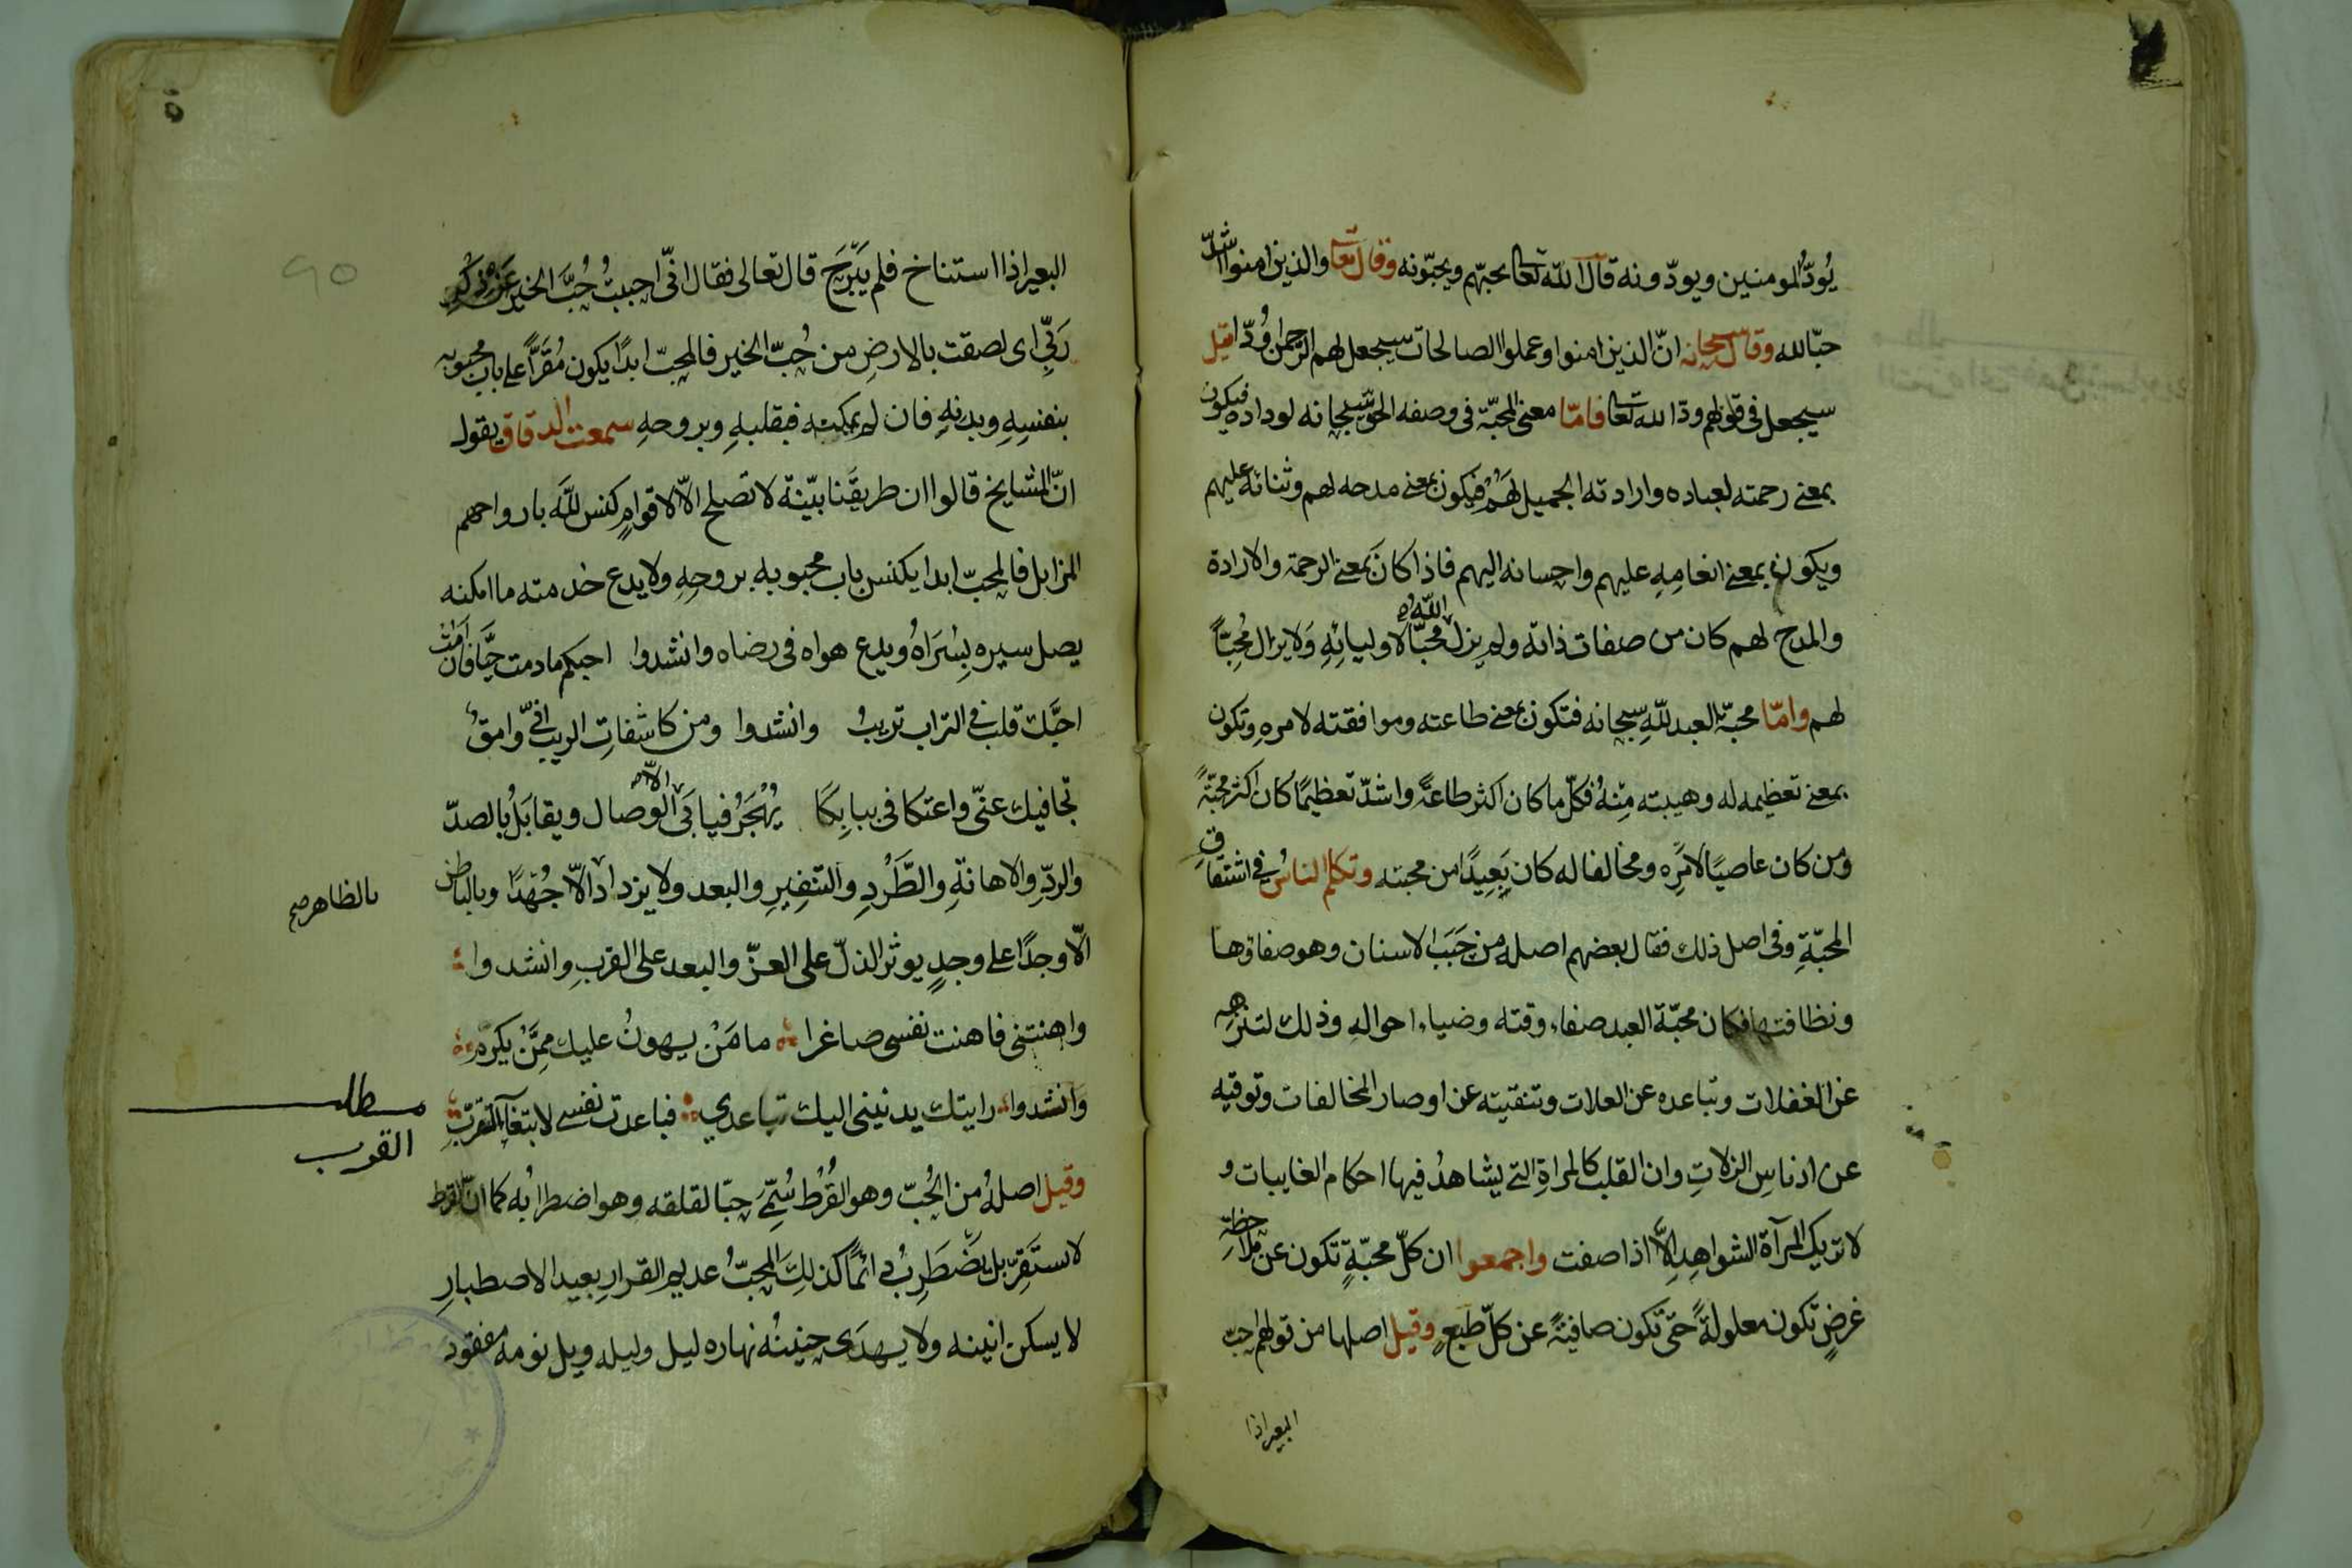 يُودُّ المومنين ويودّونه قال الله تعا يحبّهم ويحبّونه وقال تعا والذين امنوا اشدّ
حبّا لله وقال سبحانه انّ الذين امنوا وعملوا الصالحات سيجعل لهم الرحمن وُدّا قيل
سيجعل في قلوبهم ودّا لله تعا فامّا معنى المحبّة في وصفه الحق سبحانه لوداده فيكون
بمعنى رحمته لعباده وارادته الجميل لهم فيكون بمعنى مدحه لهم وثنائه عليهم
ويكون بمعنى انعامِهِ عليهم واحسانه اليهم فاذا كان بمعنى الرحمة والارادة
والمدح لهم كان من صفات ذاته ولم يزل الله محبّا لاوليائِهِ وَلا يزال مُحِبّاً
لهم وامّا محبّة العبد للهِ سبحانه فتكون بمعنى طاعته وموافقته لامرِهِ وتكون
بمعنى تعظيمه له وهيبته مِنْهُ فكلّ ما كان اكثر طاعةً واشدّ تعظيمًا كان اكثر محبّةً
ومن كان عاصيًا لامْرِه ومخالفا له كان بَعِيدًا من محبته وتكلم الناسُ في اشتقاقِ
المحبّةِ وفى اصل ذلك فقال بعضهم اصله من حَبَب الاسنان وهو صفاوها
ونظافتها فكان محبّة العبد صفاء وقته وضياء احوالهِ وذلك لتنزهِهِ
عن الغفلات وتباعده عن العلات وتنقيته عن اوصار المخالفات وتوقيه
عن ادناسِ الزلاتِ وان القلب كالمراةِ التي يشاهدُ فيها احكام الغايبات و
لا تريك المرآة الشواهِد الّا اذا صفت واجمعوا ان كلّ محبّةٍ تكون عن ملاحظة
غرضٍ تكون معلولةً حتّى تكون صافيةً عن كلّ طبعٍ وقيل اصلها من قولهم احبّ
البعير اذا
البعير اذا استناخ فلم يَبْرَحْ قال تعالى فقال انّى احببتُ حُبَّ الخير عَنْ ذِكْرِ
رَبّى اى لصقت بالارضِ من حُبّ الخير فالمحِبّ ابدًا يكون مُقَرًّا على باب محبوبه
بنفسِهِ وبدنهِ فان لم يمكنه فبقلبهِ وبروحهِ سمعت الدقاق يقول
انّ المشايخ قالوا ان طريقَنا بيّنة لا تصلح الّا لاقوامٍ كنس للّه بارواحهم
المزابل فالمحبّ ابدا يكنس باب محبوبه بروحِهِ ولا يدع خدمته ما امكنه
يصل سيره بِسُرَاهُ ويدع هواه فى رضاه وانشدوا احبكم مادمت حيَّا فان اَمُتْ
احبَّك قلب في التراب تريبُ وانشدوا ومن كاشفاتِ الريب انّى وامقُ
تجافيك عنّى واعتكافى ببابِكَا يُهْجَرُ فيابَى الّا الوصال ويقابَلُ بالصدّ
والردّ والاهانةِ والطَّرْدِ والتنفِيرِ والبعد ولا يزداد الّا جُهْدًا وبالباطن
بالظاهر صح
الّا وجدًا على وجدٍ يوثر الذلّ على العزّ والبعد على القربِ وانشدوا
واهنتنى فاهنت نفسى صاغرا ما مَنْ يهونُ عليك ممَّنْ يكرَم
وانشدوا رايتك يدنينى اليك تباعدي فباعدت نفسى لابتغآء التقرّبِ
مطلب
القرب
وقيل اصلهُ من الحُبّ وهو القُرْط سُمّىَ حبّا لقلقه وهو اضطرابُه كما انّ القرط
لا يستَقِرّ بل يَضْطَرِبُ دائمًا كذلِكَ المحِبُّ عديم القرارِ بعيد الاصطبارِ
لا يسكن انينه ولا يهدَى حنينُه نهاره ليل وليله ويل نومه مفقود